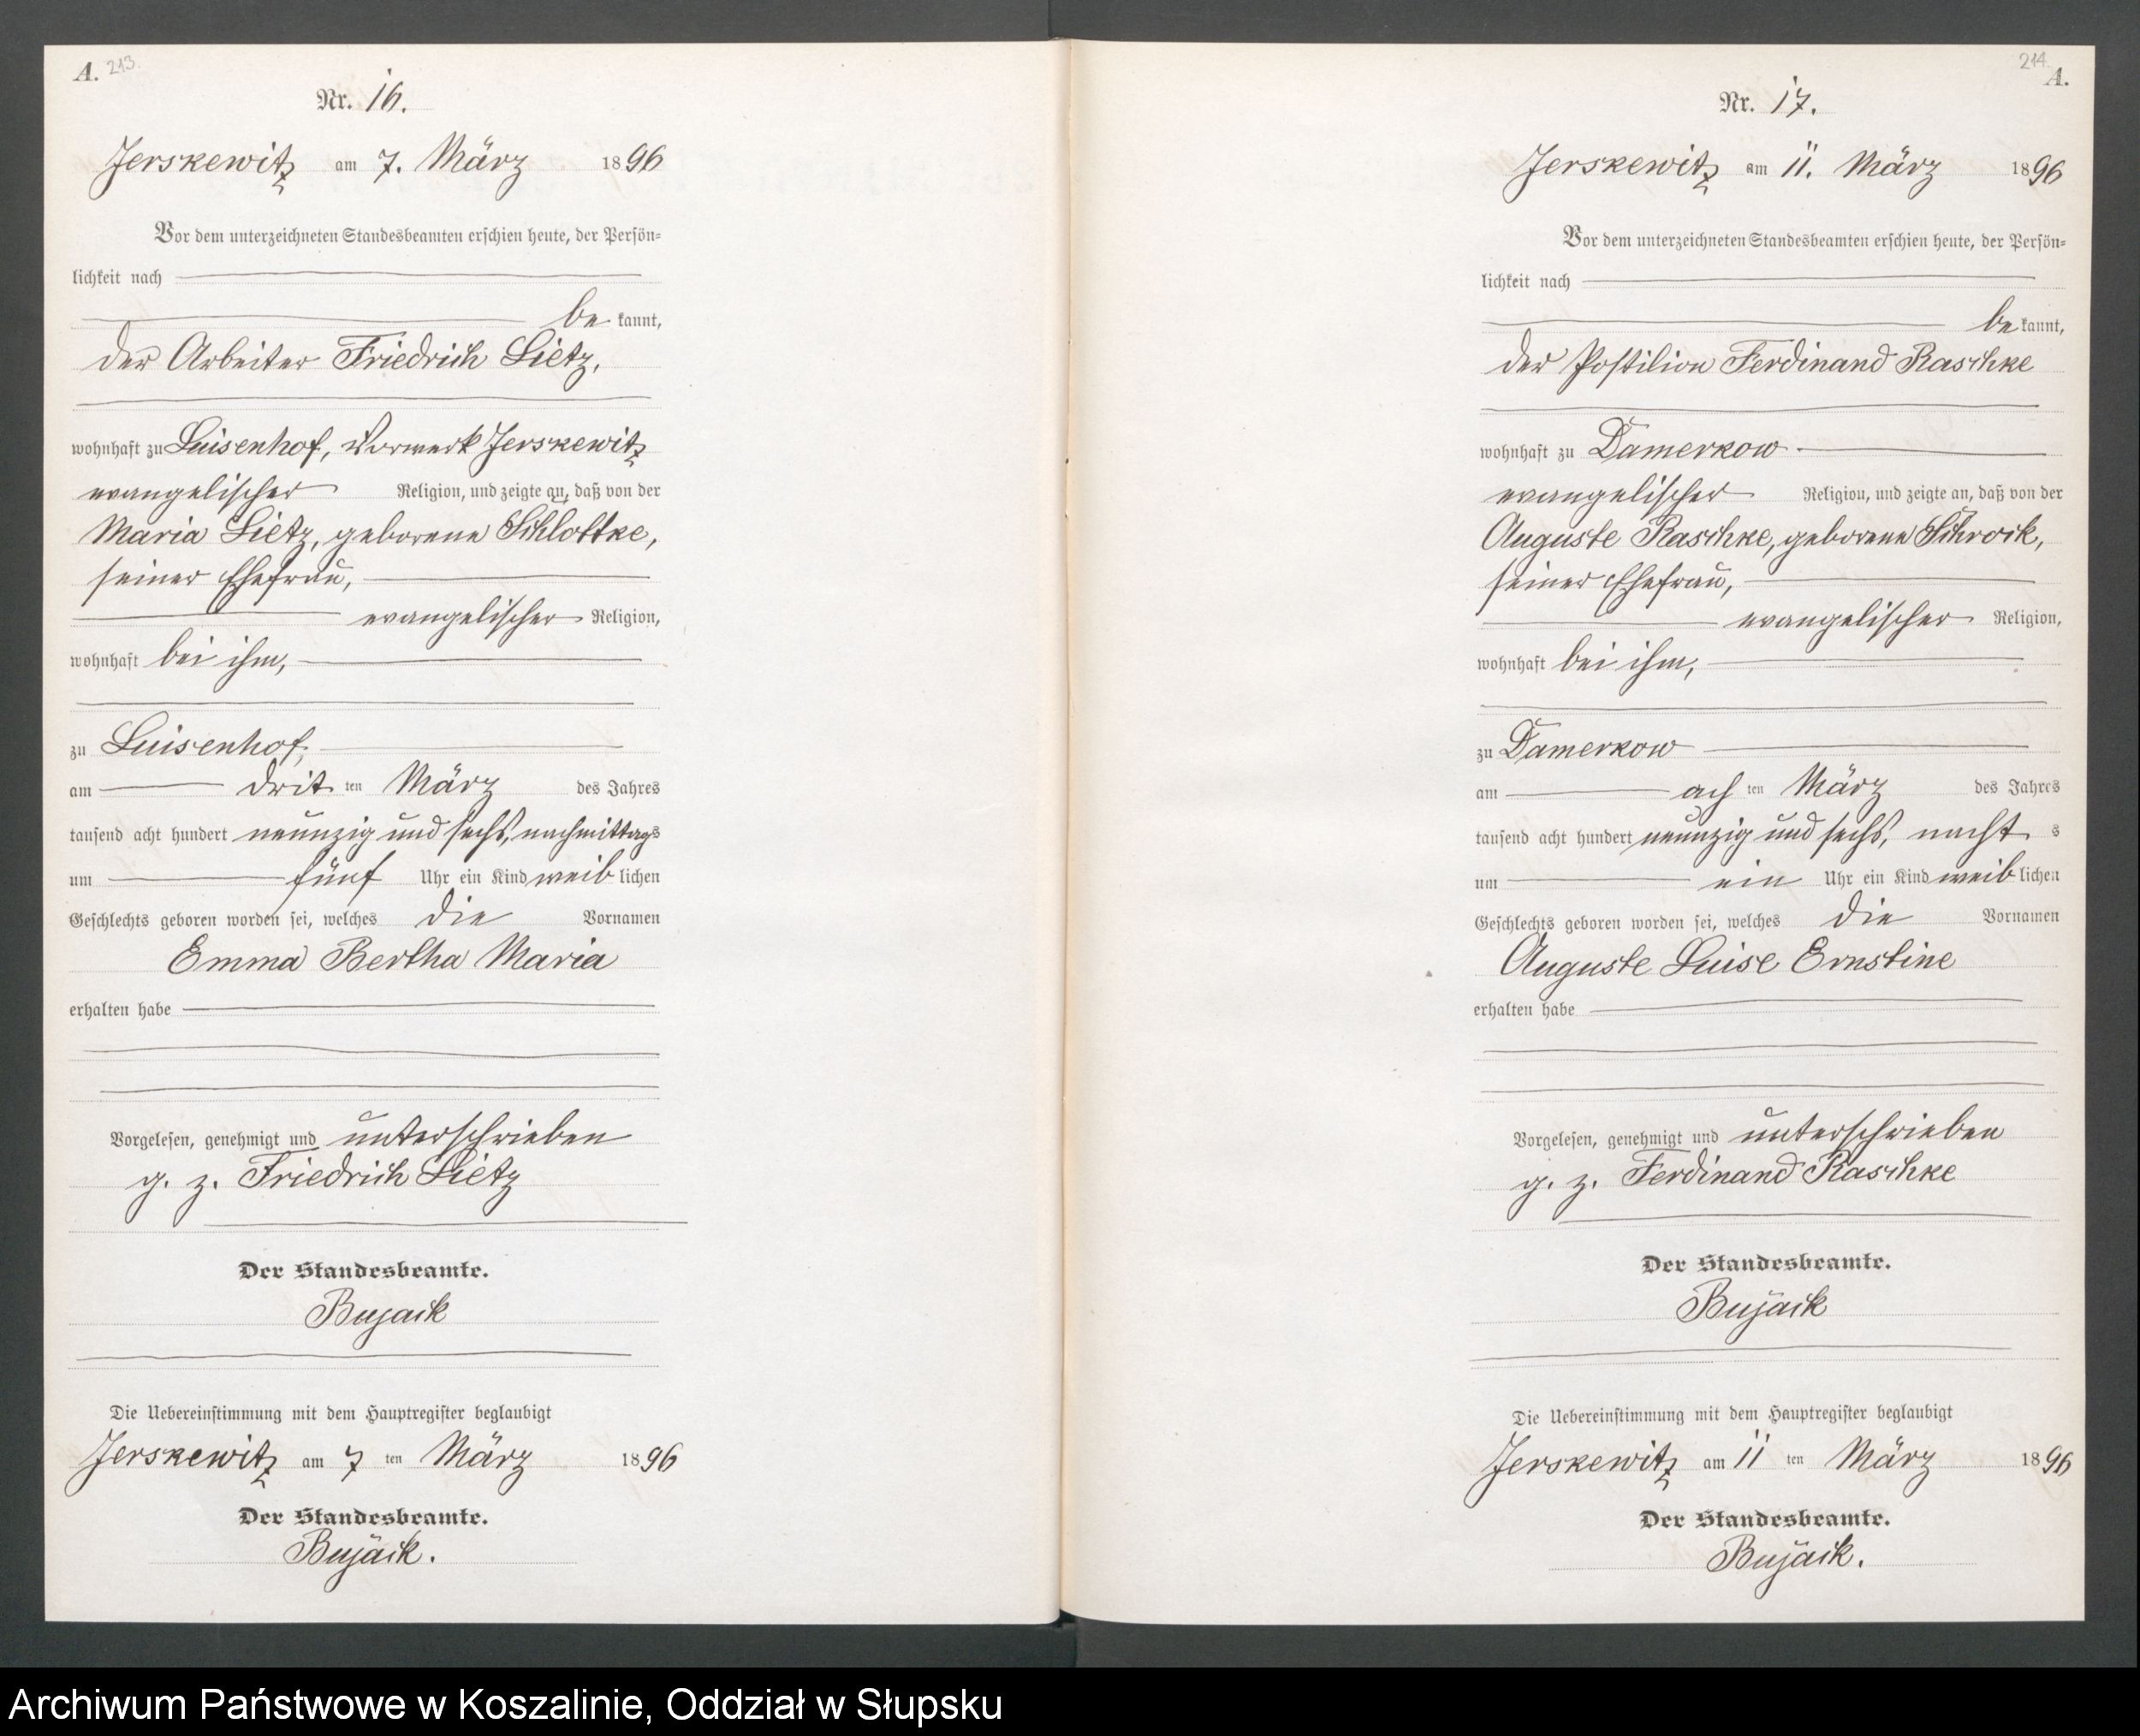 A. 213.
Nr. 16.
Jerskewitz am 7. März 1896
Vor dem unterzeichneten Standesbeamten erschien heute, der Persön-
lichkeit nach
be kannt,
der Arbeiter Friedrich Lietz,
wohnhaft zu Luisenhof, Vorwerk Jerskewitz
evangelischer Religion, und zeigte an, daß von der
Maria Lietz, geborene Schlottke,
seiner Ehefrau,
evangelischer Religion,
wohnhaft bei ihm,
zu Luisenhof,
am drit ten März des Jahres
tausend acht hundert neunzig und sechs, nachmittags
um fünf Uhr ein Kind weib lichen
Geschlechts geboren worden sei, welches die Vornamen
Emma Bertha Maria
erhalten habe
Vorgelesen, genehmigt und unterschrieben
g. z. Friedrich Lietz
Der Standesbeamte.
Bujack
Die Uebereinstimmung mit dem Hauptregister beglaubigt
Jerskewitz am 7 ten März 1896
Der Standesbeamte.
Bujack.
214. A.
Nr. 17.
Jerskewitz am 11. März 1896
Vor dem unterzeichneten Standesbeamten erschien heute, der Persön-
lichkeit nach
be kannt,
der Postilion Ferdinand Raschke
wohnhaft zu Damerkow
evangelischer Religion, und zeigte an, daß von der
Auguste Raschke, geborene Schrock,
seiner Ehefrau,
evangelischer Religion,
wohnhaft bei ihm,
zu Damerkow
am ach ten März des Jahres
tausend acht hundert neunzig und sechs, nacht s
um ein Uhr ein Kind weib lichen
Geschlechts geboren worden sei, welches die Vornamen
Auguste Luise Ernstine
erhalten habe
Vorgelesen, genehmigt und unterschrieben
g. z. Ferdinand Raschke
Der Standesbeamte.
Bujack
Die Uebereinstimmung mit dem Hauptregister beglaubigt
Jerskewitz am 11 ten März 1896
Der Standesbeamte.
Bujack.
Archiwum Państwowe w Koszalinie, Oddział w Słupsku